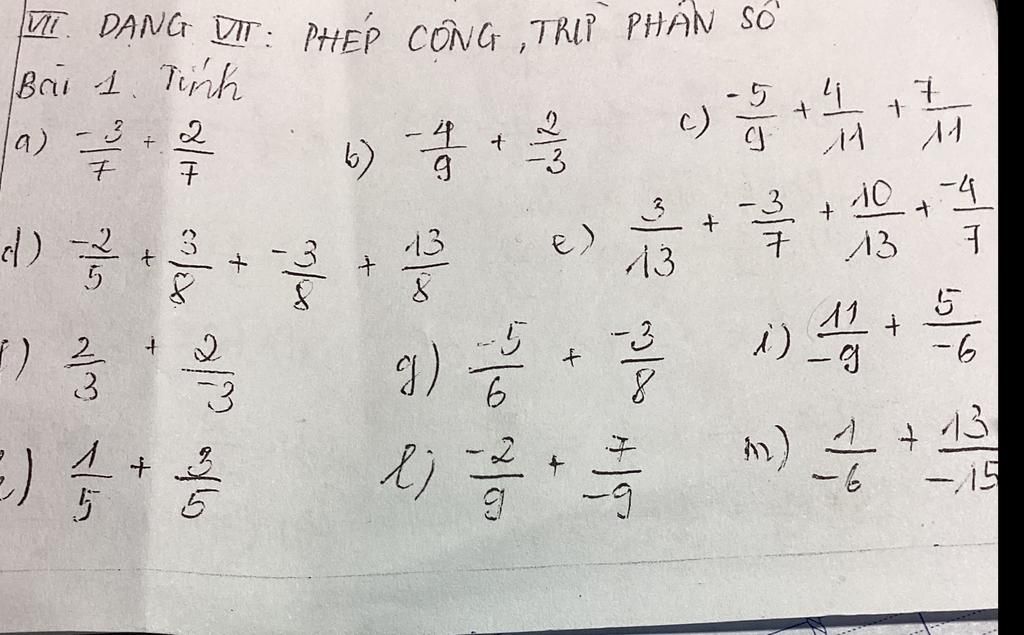 VII. DẠNG VII: PHÉP CỘNG, TRỪ PHÂN SỐ
Bài 1. Tính
a) -3/7 + 2/7 b) -4/9 + 2/-3 c) -5/9 + 4/11 + 7/11
d) -2/5 + 3/8 + -3/8 + 13/8 e) 3/13 + -3/7 + 10/13 + -4/7
) 2/3 + 2/-3 g) -5/6 + -3/8 i) 11/-9 + 5/-6
) 1/5 + 3/5 l) -2/9 + 7/-9 m) 1/-6 + 13/-15